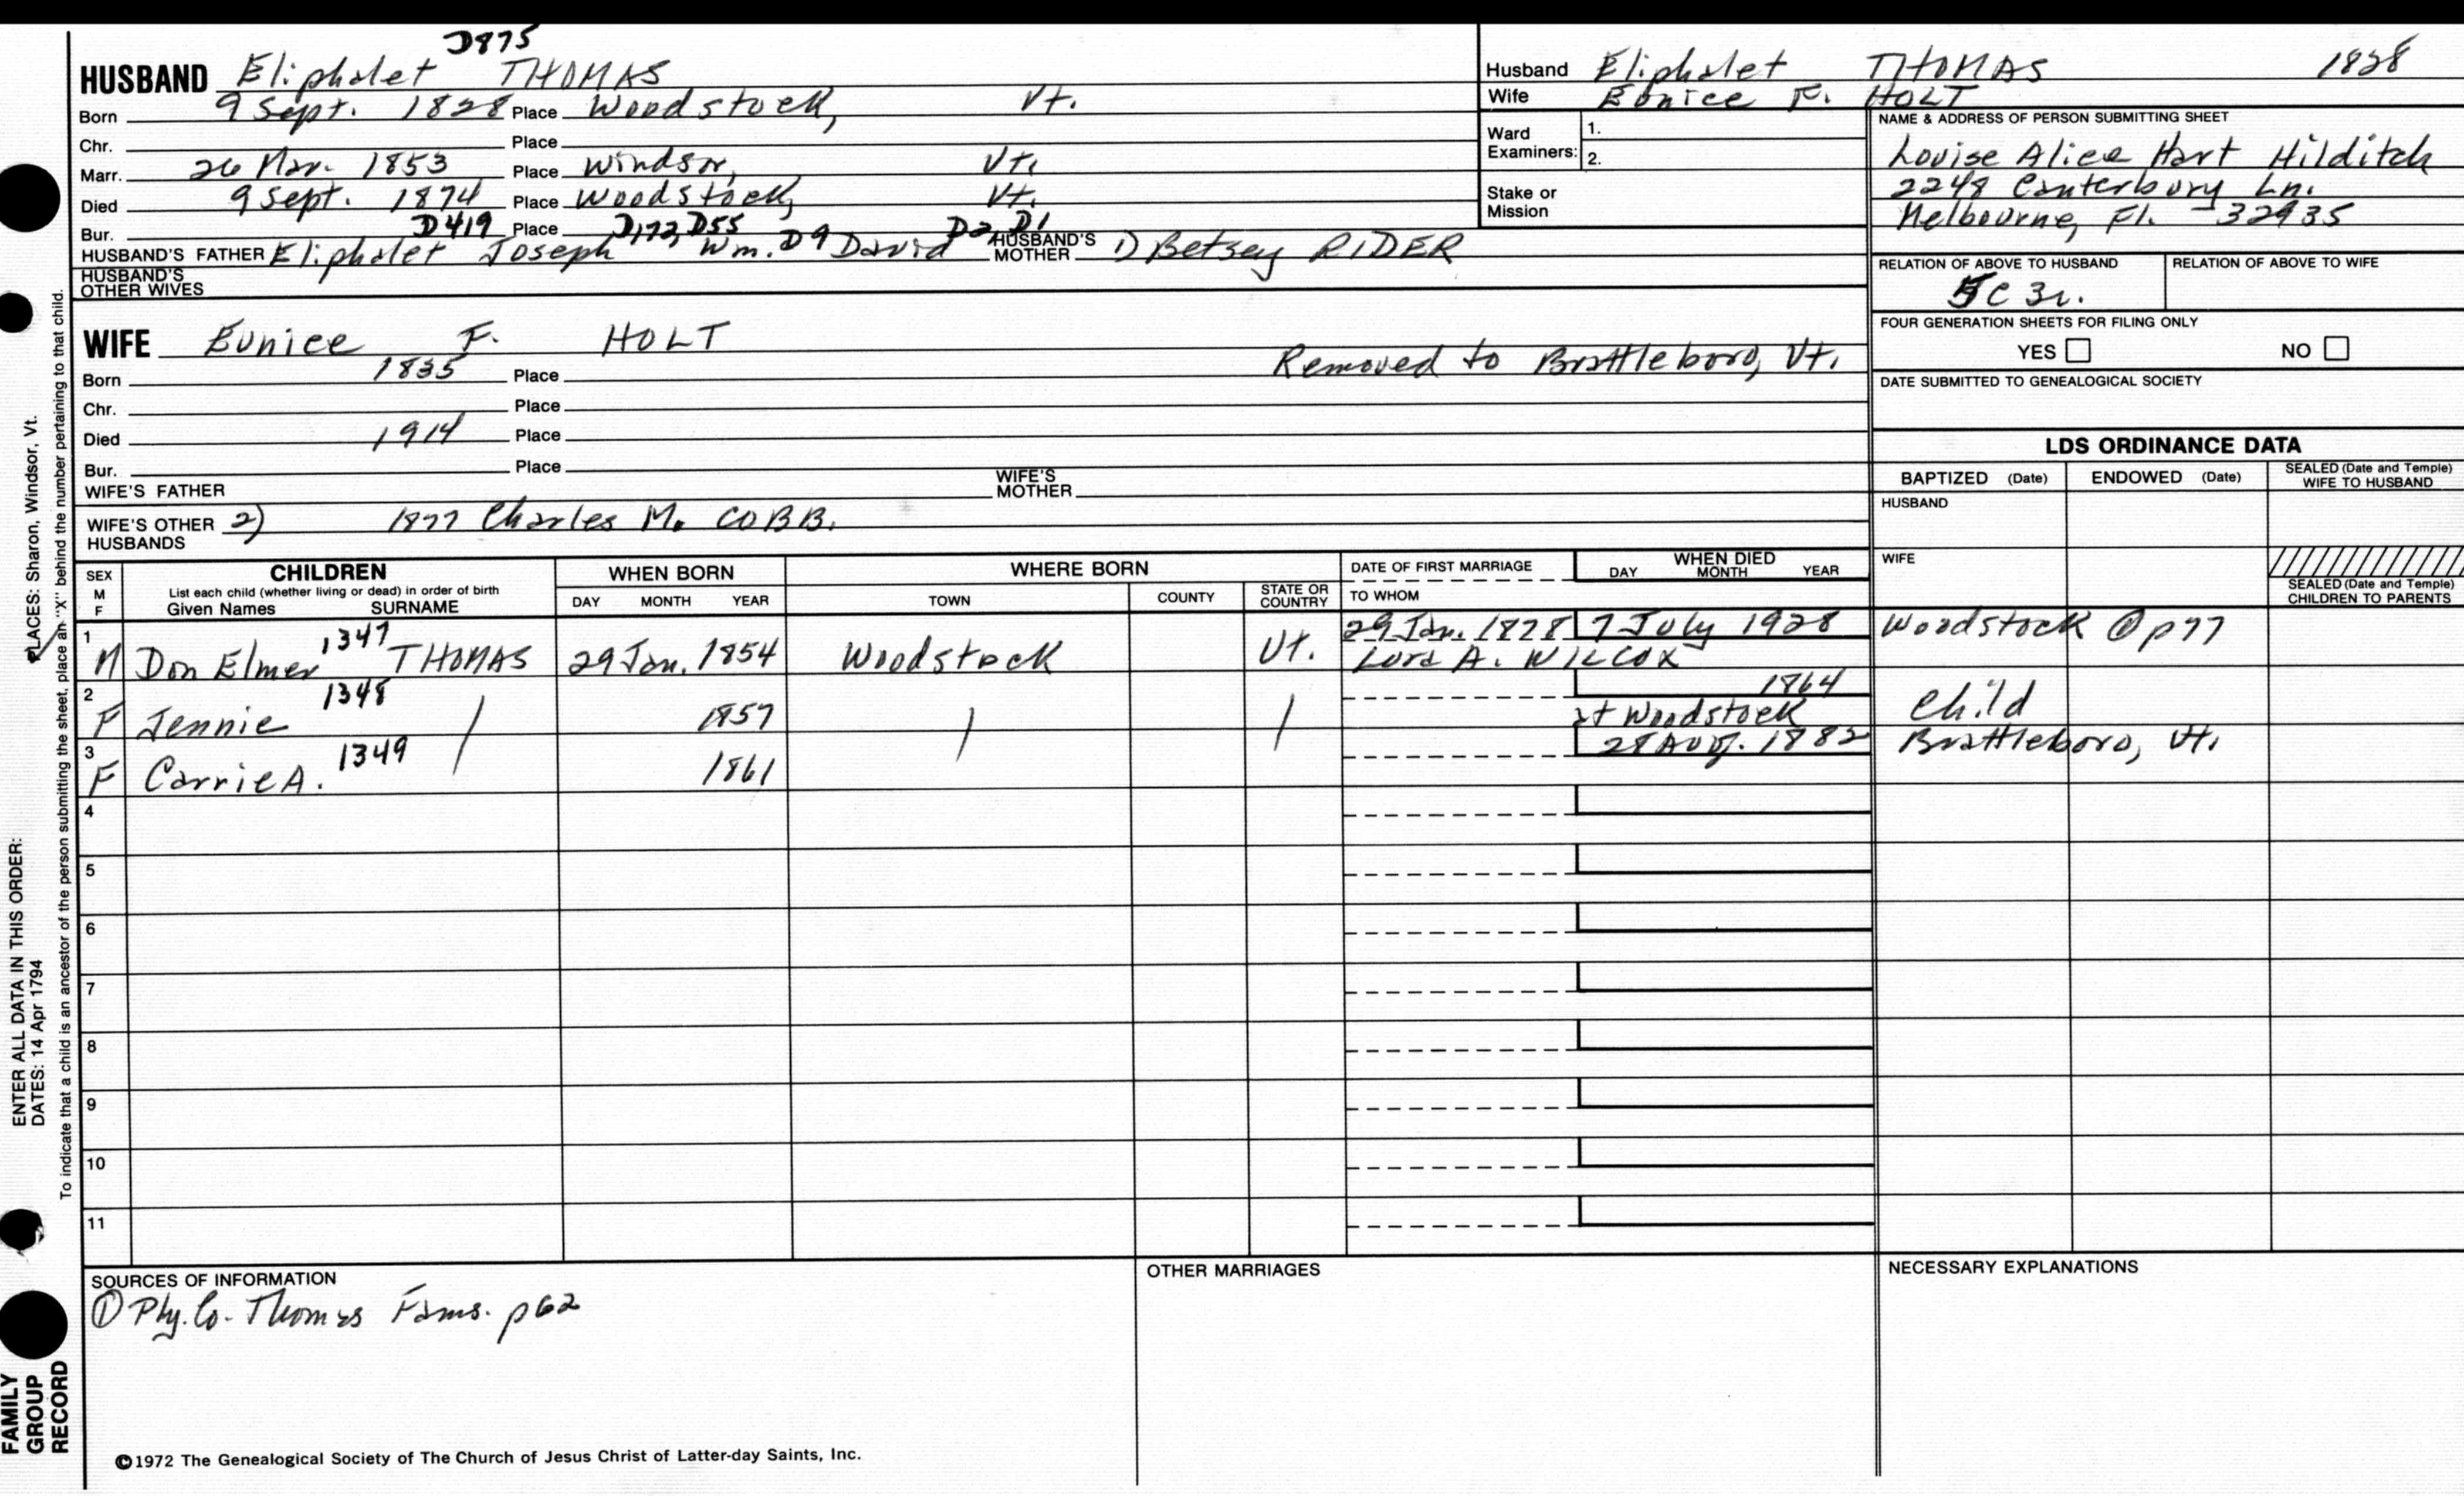 D875
HUSBAND Eliphalet THOMAS
Born 9 Sept. 1828 Place Woodstock, Vt.
Chr. Place
Marr. 26 Mar. 1853 Place Windsor, Vt.
Died 9 Sept. 1874 Place Woodstock, Vt.
Bur. D419 Place D172, D55 D9 D2, D1
HUSBAND'S FATHER Eliphalet Joseph Wm. David HUSBAND'S MOTHER 1) Betsey RIDER
HUSBAND'S OTHER WIVES
WIFE Eunice F. HOLT
Removed to Brattleboro, Vt.
Born 1835 Place
Chr. Place
Died 1914 Place
Bur. Place
WIFE'S FATHER WIFE'S MOTHER
WIFE'S OTHER HUSBANDS 2) 1877 Charles M. COBB.
Husband Eliphalet THOMAS 1828
Wife Eunice F. HOLT
Ward Examiners: 1.
2.
Stake or Mission
NAME & ADDRESS OF PERSON SUBMITTING SHEET
Louise Alice Hart Hilditch
2248 Canterbury Ln.
Melbourne, Fl. - 32935
RELATION OF ABOVE TO HUSBAND RELATION OF ABOVE TO WIFE
5C 3r.
FOUR GENERATION SHEETS FOR FILING ONLY
YES NO
DATE SUBMITTED TO GENEALOGICAL SOCIETY
LDS ORDINANCE DATA
BAPTIZED (Date) ENDOWED (Date) SEALED (Date and Temple) WIFE TO HUSBAND
HUSBAND
WIFE
SEALED (Date and Temple) CHILDREN TO PARENTS
SEX M F CHILDREN WHEN BORN WHERE BORN DATE OF FIRST MARRIAGE WHEN DIED
List each child (whether living or dead) in order of birth
Given Names SURNAME DAY MONTH YEAR TOWN COUNTY STATE OR COUNTRY TO WHOM DAY MONTH YEAR
1 1347 29 Jan. 1878 7 July 1928 Woodstock @ p77
M Don Elmer THOMAS 29 Jan. 1854 Woodstock Vt. Lura A. WILCOX
2 1348 1864
F Jennie / 1857 / / at Woodstock Child
3 1349 28 Aug. 1882 Brattleboro, Vt.
F Carrie A. 1861
4
5
6
7
8
9
10
11
SOURCES OF INFORMATION OTHER MARRIAGES NECESSARY EXPLANATIONS
① Ply. Co. Thomas Fams. p62
©1972 The Genealogical Society of The Church of Jesus Christ of Latter-day Saints, Inc.
PLACES: Sharon, Windsor, Vt.
To indicate that a child is an ancestor of the person submitting the sheet, place an "X" behind the number pertaining to that child.
ENTER ALL DATA IN THIS ORDER:
DATES: 14 Apr 1794
FAMILY
GROUP
RECORD